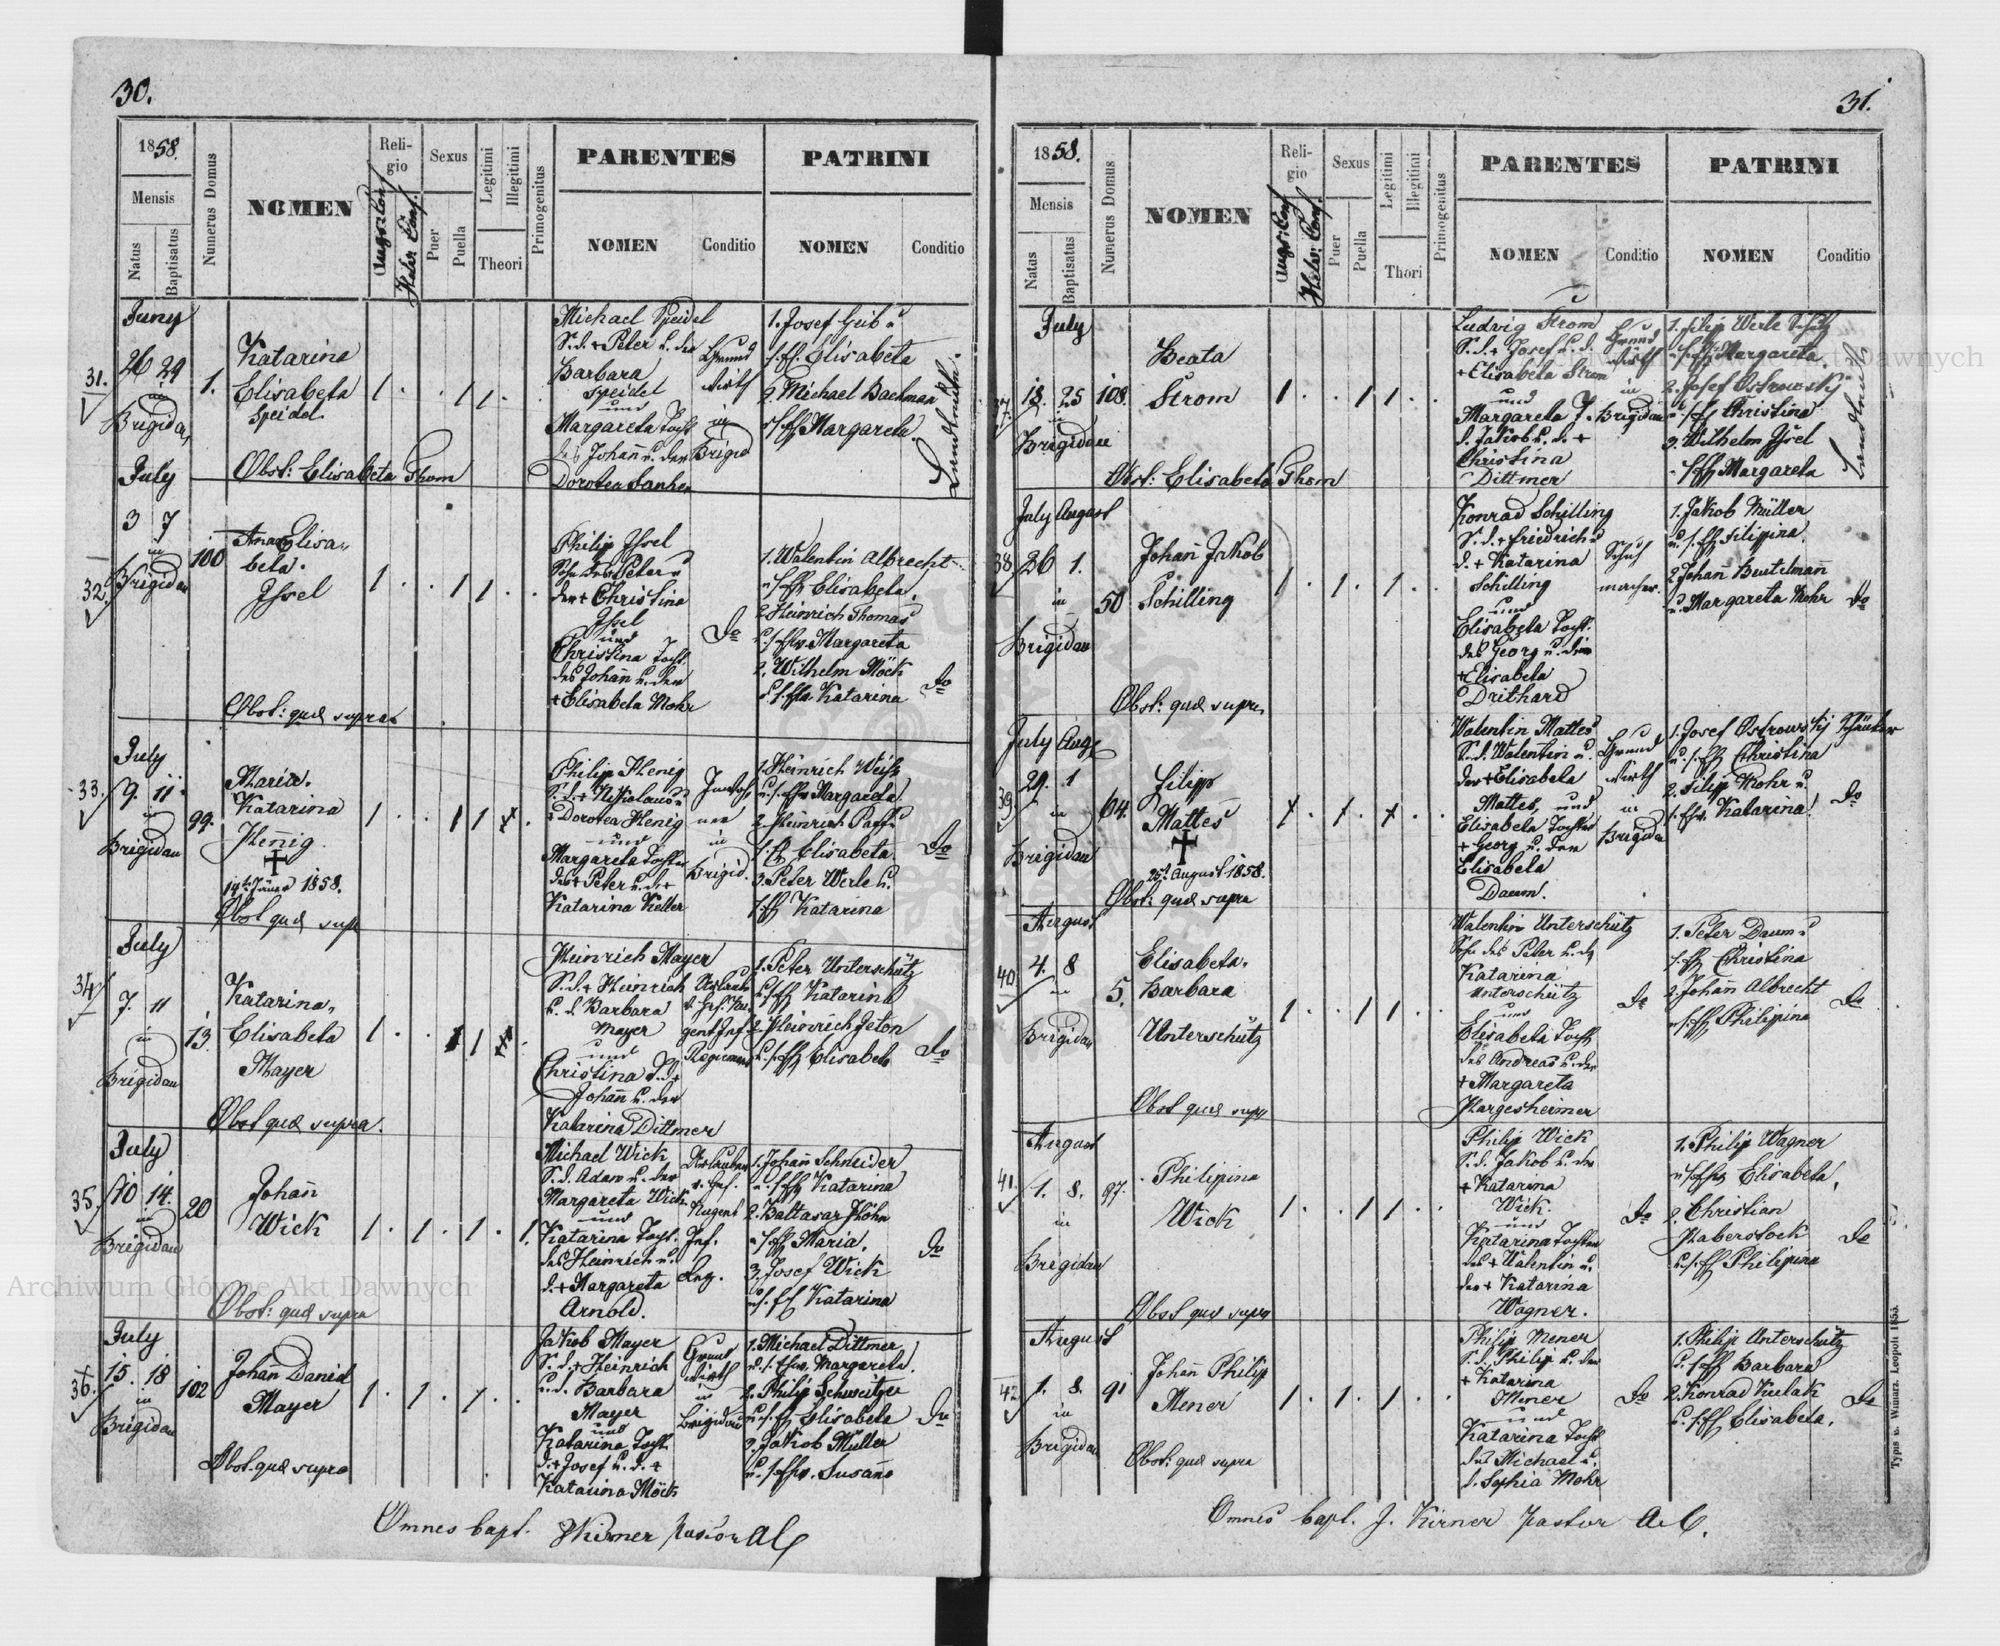 30.
1858.
Mensis
Natus
Baptisatus
Numerus Domus
NOMEN
Religio
Augs: Conf.
Helv: Conf.
Sexus
Puer
Puella
Legitimi
Illegitimi
Theori
Primogenitus
PARENTES
NOMEN
Conditio
PATRINI
NOMEN
Conditio
31.
Juny
26 29
in
Brigidau
1.
Katarina
Elisabeta
Speidel
Obst: Elisabeta Thom
Michael Speidel
S. d. + Peter u. der
Barbara
Speidel
und
Margareta Tocht
des Johañ u. der
Dorotea
Grund
wirth
in
Brigid
1. Josef Geib u
s. ff. Elisabeta
2. Michael Bachman
u s. ff Margareta
32.
July
3 7
in
Brigidau
100
Ana Elisa-
beta.
Issel
Obst: quæ supra
Philip Issel
Sohn des Peter u
der + Christina
Issel
und
Christina Tocht.
des Johan u. der
+ Elisabeta Mohr
Do
1. Walentin Albrecht
u s. ffr Elisabeta.
2. Heinrich Thomas
u. s. ffr. Margareta
2. Wilhelm Möck
u. s. ffr. Katarina
Do
33.
July
9. 11.
in
Brigidau
99.
Maria.
Katarina
Henig.
14t Jäner 1858.
Obst quæ supr
Philip Henig
S. d. + Nikolaus u
+ Dorotea Henig
und
Margareta Tochter
des + Peter u. d. +
Katarina Keller
in
Brigid.
1. Heinrich Weisz
u. s. ffr Margareta
2. Heinrich
s. ff Elisabeta
3. Peter Werle u.
s. ff Katarina
Do
34
July
7. 11
in
Brigidau
13.
Katarina,
Elisabeta
Mayer
Obst quæ supra.
Heinrich Mayer
S. d. + Heinrich
u. d. Barbara
Mayer
und
Christina T. d. +
Johañ u. der
Katarina Dittmer
Urlauber
Regiment
1. Peter Unterschütz
u. s. ff Katarina
2. Heinrich Jeton
u. s. ff Elisabeta
Do
35.
July
10 14.
in
Brigidau
20
Johañ
Wick
Obst: quæ supra
Michael Wick
S. d. Adam u. der
Margareta Wick
und
Katarina Tocht.
des Heinrich u.
d. + Margareta
Arnold.
Urlauber
Inf.
Reg.
1. Johañ Schneider
u. s. ff Katarina
2. Baltasar Höhn
u s. ff Maria.
3. Josef Wick
u. s. ff Katarina
Do
36.
July
15. 18
in
Brigidau
102
Johañ Daniel
Mayer
Obst. quæ supra
Jakob Mayer
S. d. + Heinrich
u. d. Barbara
Mayer
und
Katarina Tocht.
d. + Josef u. d. +
Katarina Möck
Grund
wirth
in
Brigidau
1. Michael Dittmer
u. s. ffr. Margareta.
2. Philip Schweitzer
u. s. ff Elisabeta
3. Jakob Müller
u. s. ffr. Susañe
Do
Omnes bapt. J Kirner Pastor A C
31.
1858.
Mensis
Natus
Baptisatus
Numerus Domus
NOMEN
Religio
Augs: Conf
Helv: Conf.
Sexus
Puer
Puella
Legitimi
Illegitimi
Thori
Primogenitus
PARENTES
NOMEN
Conditio
PATRINI
NOMEN
Conditio
37.
July
18. 25
in
Brigidau
108.
Beata
Strom
Obst: Elisabeta Thom
Ludwig Strom
S. d. + Josef u. d.
+ Elisabeta Strom
und
Margareta T.
d. Jakob u. d. +
Christina
Dittmer
Grund
wirth
in
Brigidau
1. Filip Werle
u. s. ff Margareta
2. Josef Ostrowskÿ
u. s. ff Christina
3. Wilhelm Issel
u s. ff Margareta
38
July August
26 1.
in
Brigidau
50
Johañ Jakob
Schilling
Obst: quæ supra
Konrad Schilling
S. d. + Friedrich u
d. + Katarina
Schilling
und
Elisabeta Tocht.
des Georg u. der
+ Elisabeta
Drithard
Schuh
macher.
1. Jakob Müller
u. s. ff Filippina.
2. Johañ Beutelmañ
u. Margareta Mohr
Do
39
July Aug
29. 1
in
Brigidau
64.
Filipp
Mattes
25t August 1858.
Obst: quæ supra
Walentin Mattes
S. d. Walentin u.
der + Elisabeta
Mattes, und
Elisabeta Tochter
+ Georg u. der
Elisabeta
Daum.
Grund
wirth
in
Brigida
1. Josef Ostrowskÿ Schänker
u. s. ff Christina
2. Filip Mohr u.
s. ffr. Katarina
Do
40
August
4. 8
in
Brigidau
5.
Elisabeta.
Barbara
Unterschütz
Obst quæ supr
Walentin Unterschütz
Sohn des Peter u. der
Katarina
Unterschütz
und
Elisabeta Tocht
des Andreas u. der
+ Margareta
Hargesheimer
Do
1. Peter Daum u
s. ff Christina
2. Johañ Albrecht
u s. ff Philipina
Do
41.
August
1. 8.
in
Brigidau
97.
Philipina
Wick
Obst quæ supra
Philip Wick
S. d. Jakob u. der
+ Katarina
Wick.
und
Katarina Tochter
des + Walentin u.
der + Katarina
Wagner.
Do
1. Philip Wagner
u s. ffr Elisabeta,
2. Christian
Haberstock
u. s. ff Philipina
Do
42.
August
1. 8.
in
Brigidau
91
Johañ Philip
Mener
Obst: quæ supra
Philip Mener
S. d. Philip u. der
+ Katarina
Mener
und
Katarina Tocht
des Michael u.
d. Sophia Mohr
Do
1. Philip Unterschütz
u. s. ff Barbara
2. Konrad Kulak
u. s. ff Elisabeta.
Do
Omnes bapt. J. Kirner Pastor A. C.
Typis v. Winiarz. Leopoli 1853.
Archiwum Główne Akt Dawnych